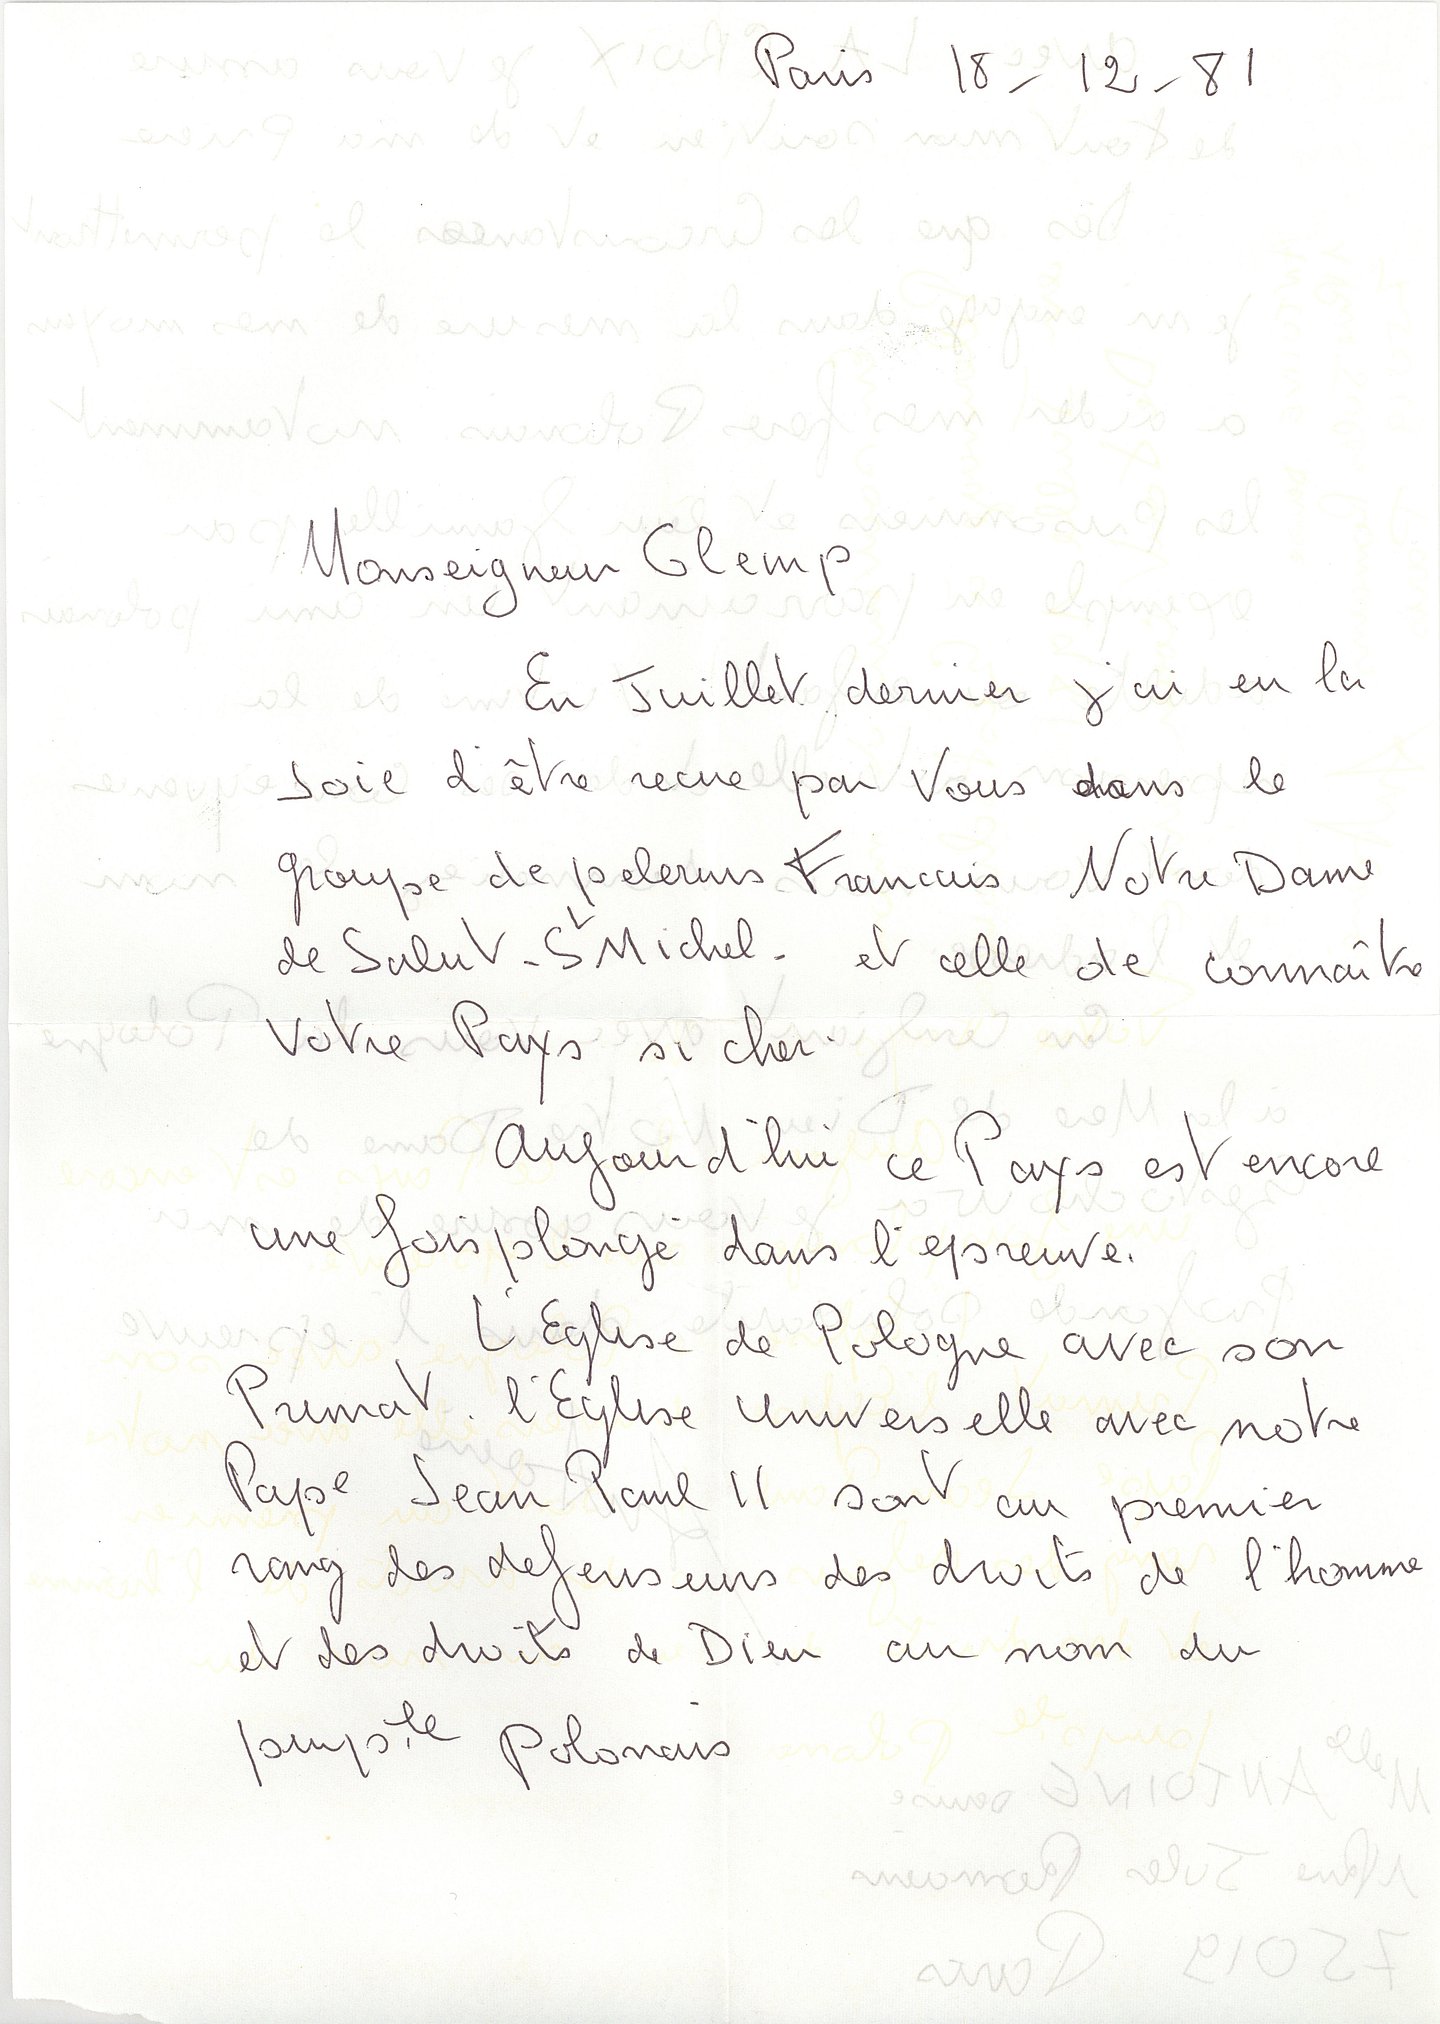 Paris 18-12-81
Monseigneur Glemp
En Juillet dernier j'ai eu la
Joie d'être recue par Vous dans le
groupe de pelerins Francais Notre Dame
de Salut - St Michel - et celle de connaître
Votre Pays si cher.
Aujourd'hui ce Pays est encore
une fois plongé dans l'epreuve.
L'Eglise de Pologne avec son
Primat. l'Eglise Universelle avec notre
Pape Jean Paul II sont au premier
rang des defenseurs des droits de l'homme
et des droits de Dieu au nom du
peuple Polonais